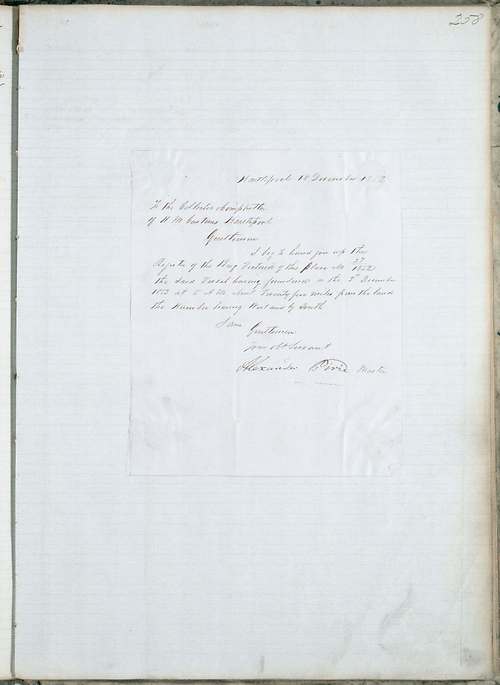 258
Hartlepool 18 December 18
To the Collector & Comptroller
of H M Customs Hartlepool
Gentlemen
I beg to hand you up the
Register of the Brig of this Place No 37/1852
the said Vessel having foundered on the 3rd December
1853 at 5 A M about Twenty five miles from the land
the Humber bearing West and by South
I am
Gentlemen
Your obt Servant
Alexander Pirie Master